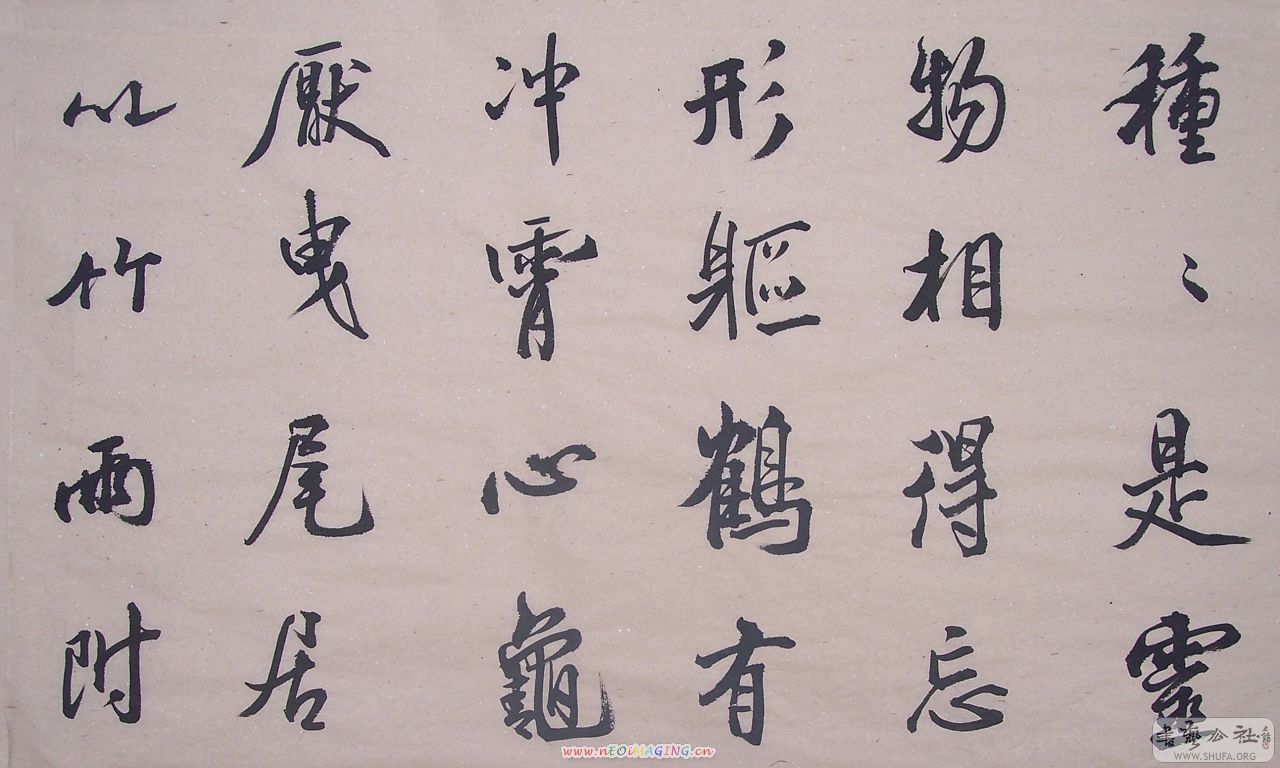 種〻是靈
物相得忘
形軀鶴有
冲霄心龜
厭曳尾居
以竹兩附
www.nEOiMAGING.cn
書藝公社
WWW.SHUFA.ORG